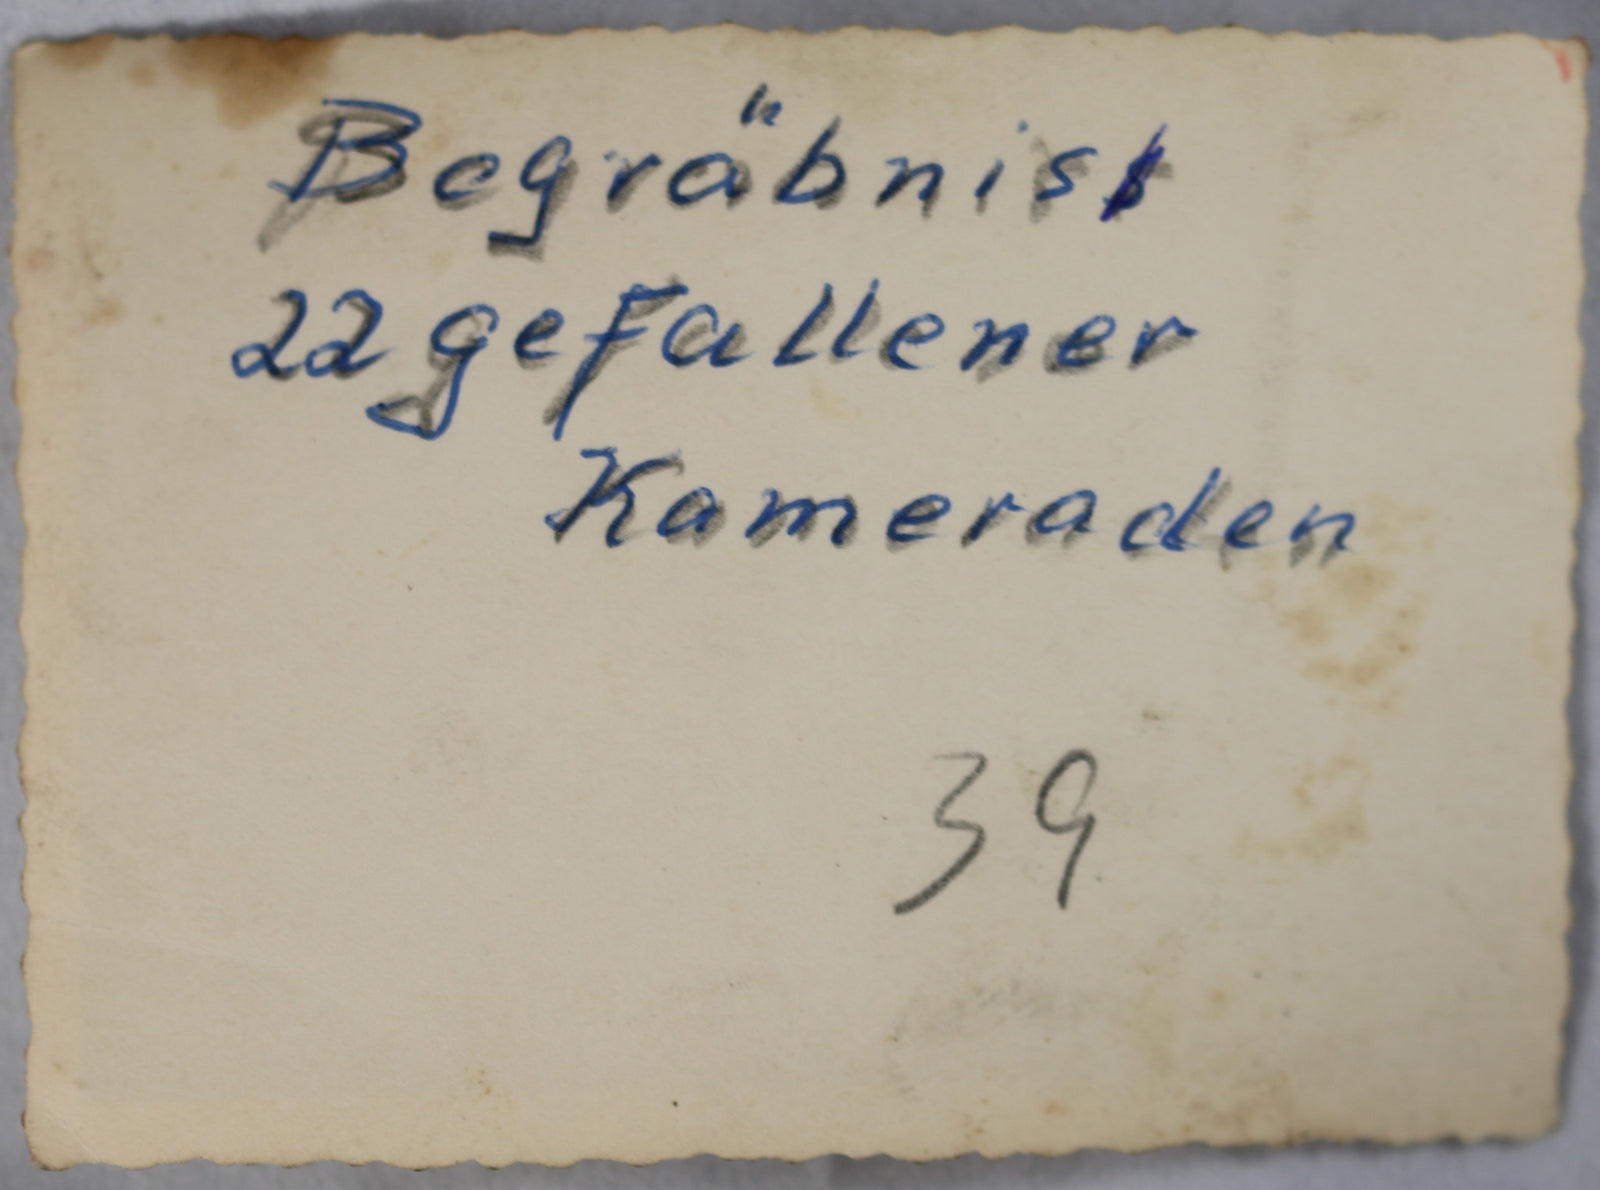 Begräbnis
22 gefallener
Kameraden
39